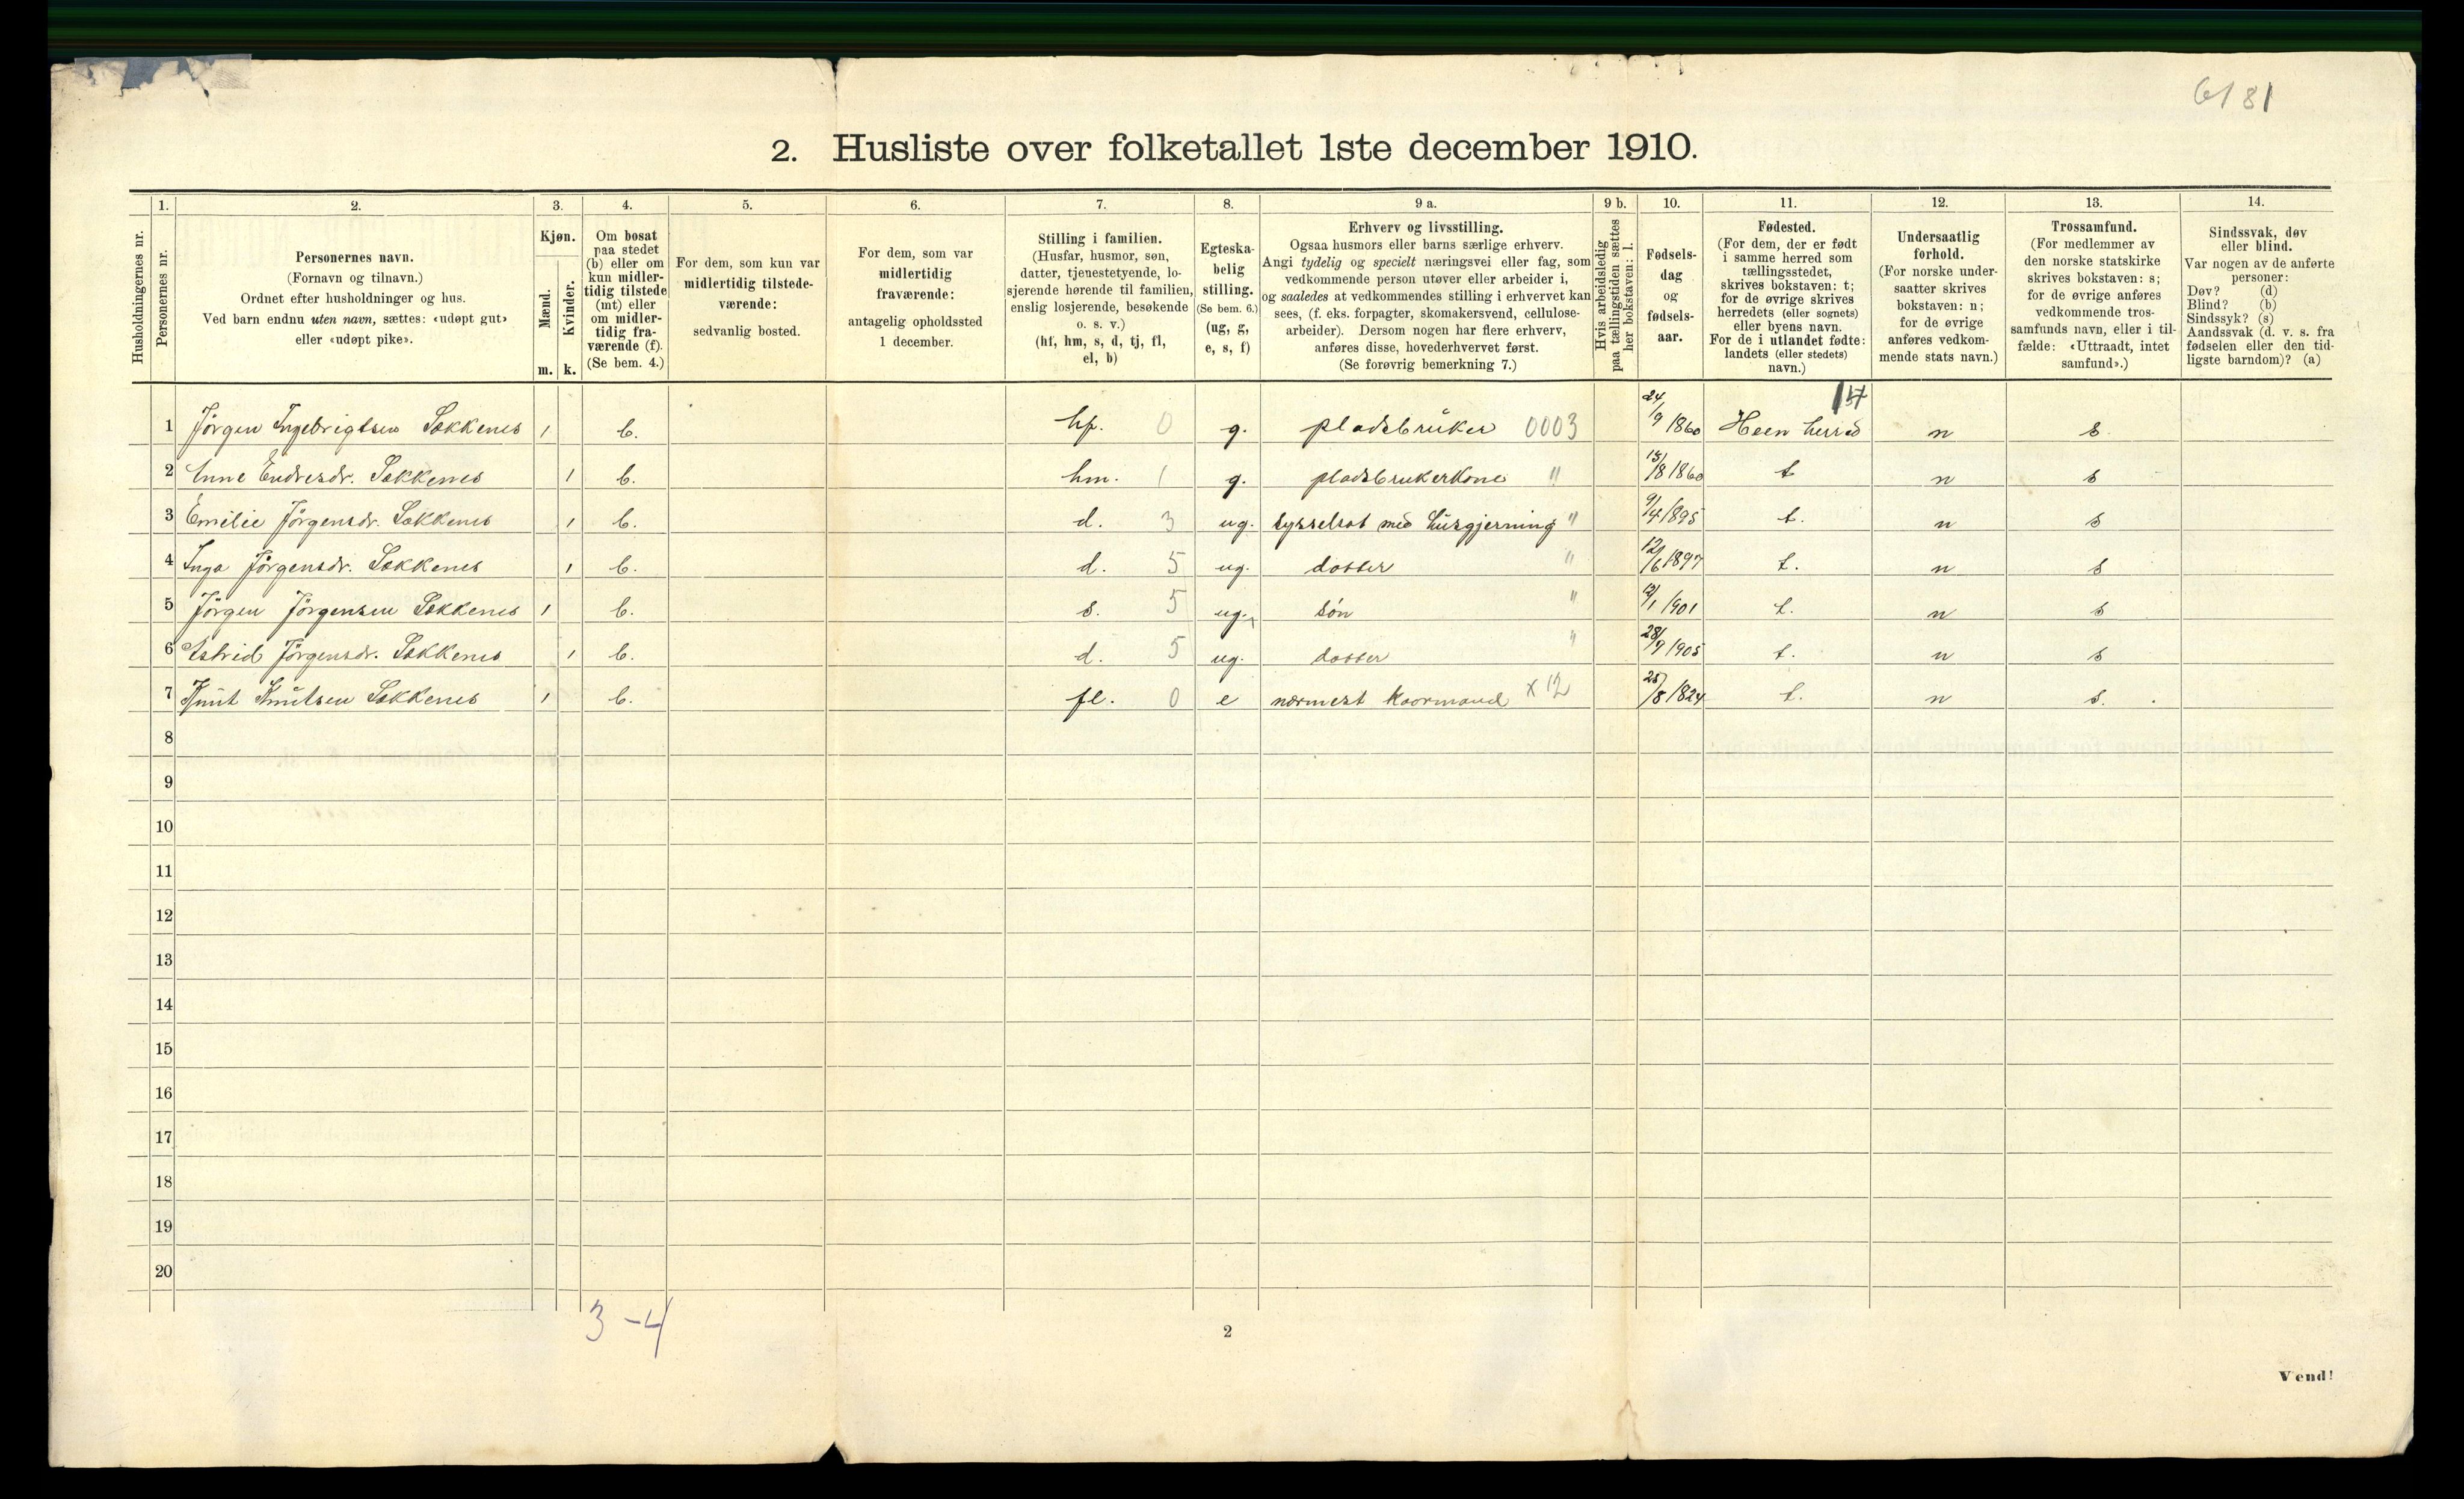 6181
2. Husliste over folketallet 1ste december 1910.
1. 2. 3. 4. 5. 6. 7. 8. 9 a. 9 b. 10. 11. 12. 13. 14.
Husholdningernes nr.
Personernes nr.
Personernes navn.
(Fornavn og tilnavn.)
Ordnet efter husholdninger og hus.
Ved barn endnu uten navn, sættes: «udøpt gut»
eller «udøpt pike».
Kjøn.
Mænd.
Kvinder.
m. k.
Om bosat
paa stedet
(b) eller om
kun midler-
tidig tilstede
(mt) eller
om midler-
tidig fra-
værende (f).
(Se bem. 4.)
For dem, som kun var
midlertidig tilstede-
værende:
sedvanlig bosted.
For dem, som var
midlertidig
fraværende:
antagelig opholdssted
1 december.
Stilling i familien.
(Husfar, husmor, søn,
datter, tjenestetyende, lo-
sjerende hørende til familien,
enslig losjerende, besøkende
o. s. v.)
(hf, hm, s, d, tj, fl,
el, b)
Egteska-
belig
stilling.
(Se bem. 6.)
(ug, g,
e, s, f)
Erhverv og livsstilling.
Ogsaa husmors eller barns særlige erhverv.
Angi tydelig og specielt næringsvei eller fag, som
vedkommende person utøver eller arbeider i,
og saaledes at vedkommendes stilling i erhvervet kan
sees, (f. eks. forpagter, skomakersvend, cellulose-
arbeider). Dersom nogen har flere erhverv,
anføres disse, hovederhvervet først.
(Se forøvrig bemerkning 7.)
Hvis arbeidsledig
paa tællingstiden sættes
her bokstaven: l.
Fødsels-
dag
og
fødsels-
aar.
Fødested.
(For dem, der er født
i samme herred som
tællingsstedet,
skrives bokstaven: t;
for de øvrige skrives
herredets (eller sognets)
eller byens navn.
For de i utlandet fødte:
landets (eller stedets)
navn.)
Undersaatlig
forhold.
(For norske under-
saatter skrives
bokstaven: n;
for de øvrige
anføres vedkom-
mende stats navn.)
Trossamfund.
(For medlemmer av
den norske statskirke
skrives bokstaven: s;
for de øvrige anføres
vedkommende tros-
samfunds navn, eller i til-
fælde: «Uttraadt, intet
samfund».)
Sindssvak, døv
eller blind.
Var nogen av de anførte
personer:
Døv? (d)
Blind? (b)
Sindssyk? (s)
Aandssvak (d. v. s. fra
fødselen eller den tid-
ligste barndom)? (a)
1 Jörgen Ingebrigtsen Sækkenes 1 b. hf. 0 g. pladsbruker 0003 24/9 1860 Heen herred n s.
2 Anne Endresdr. Sækkenes 1 b. hm. 1 g. pladsbrukerkone " 13/8 1860 t n s
3 Emilie Jörgensdr. Sækkenes 1 b. d. 3 ug. sysselsat med husgjerning " 9/4 1895 t. n s
4 Inga Jörgensdr. Sækkenes 1 b. d. 5 ug. datter " 12/6 1897 t. n s
5 Jörgen Jörgensen Sækkenes 1 b. s. 5 ug. søn " /1 1901 t. n s
6 Astrid Jörgensdr. Sækkenes 1 b. d. 5 ug. datter " 28/9 1905 t. n s
7 Knut Knutsen Sækkenes 1 b. fl. 0 e nærmest kaarmand x 12 25/8 1824 t. n s.
8
9
10
11
12
13
14
15
16
17
18
19
20
3-4
2
Vend!